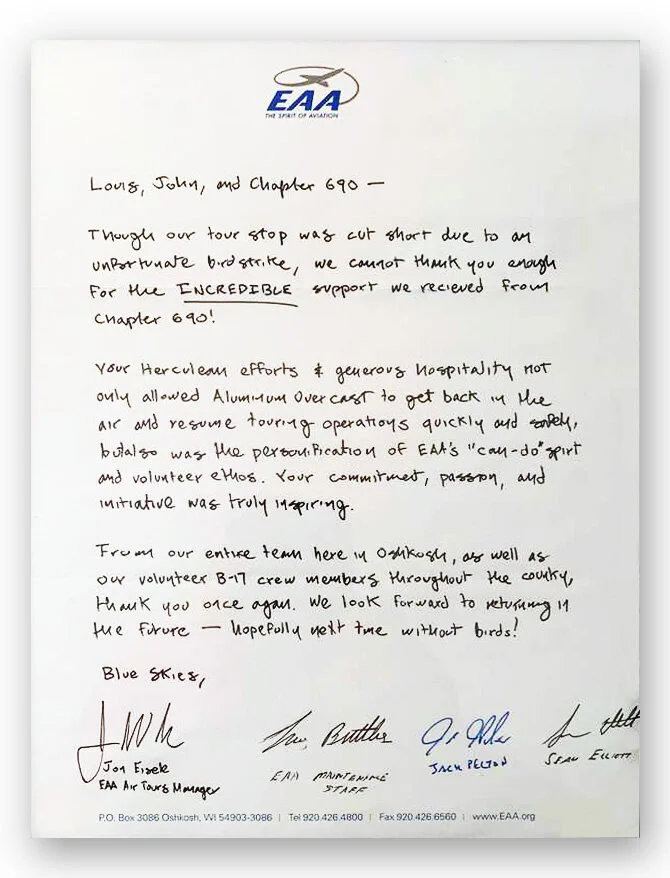 EAA
THE SPIRIT OF AVIATION
Louis, John, and Chapter 690 —
Though our tour stop was cut short due to an
unfortunate birdstrike, we cannot thank you enough
for the INCREDIBLE support we recieved from
Chapter 690!
Your Herculean efforts & generous hospitality not
only allowed Aluminum Overcast to get back in the
air and resume touring operations quickly and safely,
but also was the personification of EAA's "can-do" spirt
and volunteer ethos. Your commitment, passion, and
initiative was truly inspiring.
From our entire team here in Oshkosh, as well as
our volunteer B-17 crew members throughout the country,
thank you once again. We look forward to returning in
the future — hopefully next time without birds!
Blue Skies,
Jon Eisele
EAA Air Tours Manager
EAA MAINTENANCE
STAFF
JACK PELTON
SEAN ELLIOTT
P.O. Box 3086 Oshkosh, WI 54903-3086 | Tel 920.426.4800 | Fax 920.426.6560 | www.EAA.org